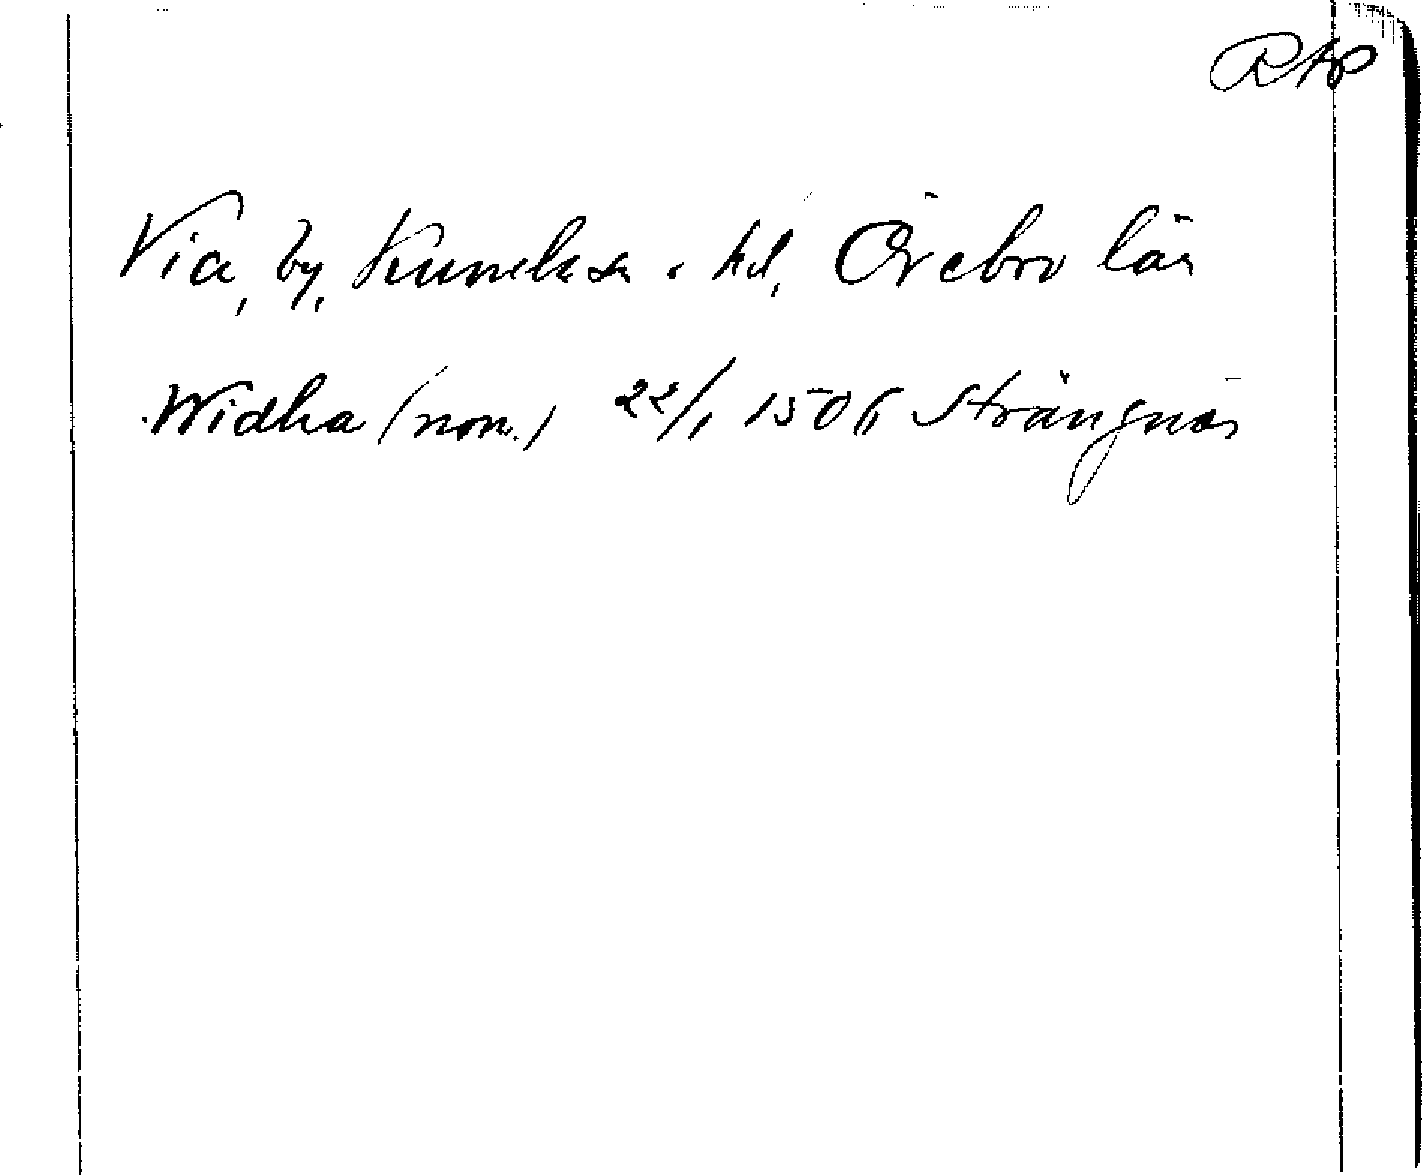 RAP
Via, by, Kumla sn o. hd, Örebro län
Widha (nom.) 22/1 1506 Strängnäs